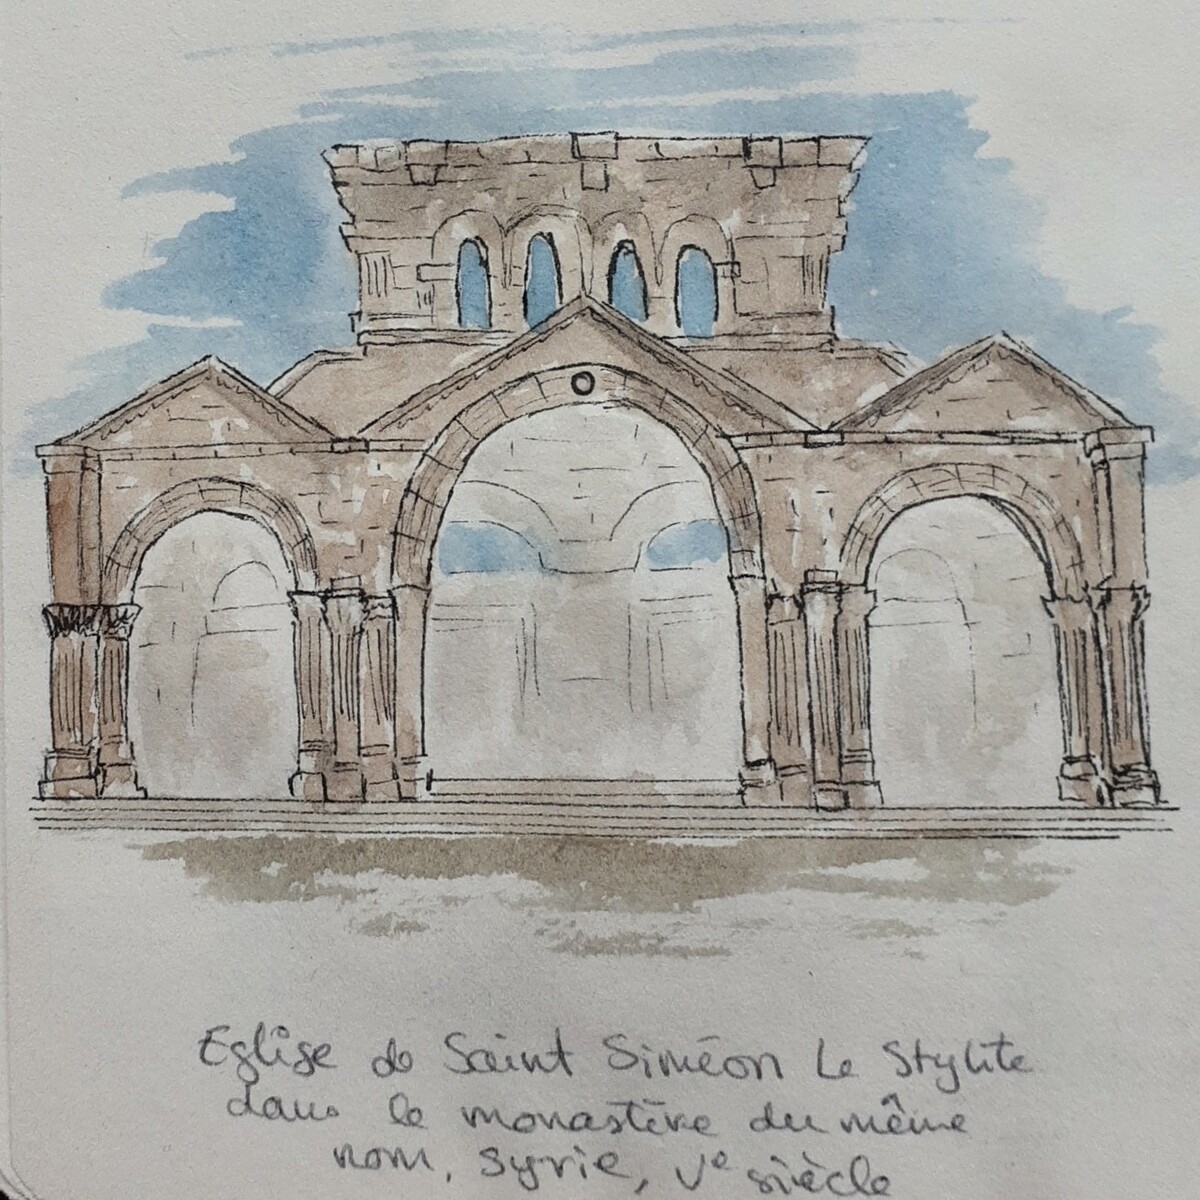 Eglise de Saint Siméon Le Stylite
dans le monastère du même
nom, Syrie, Ve siècle